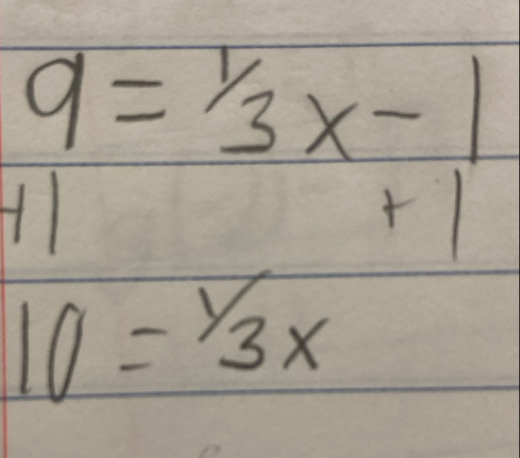 9 = 1/3 x - 1
+1 + 1
10 = 1/3 x